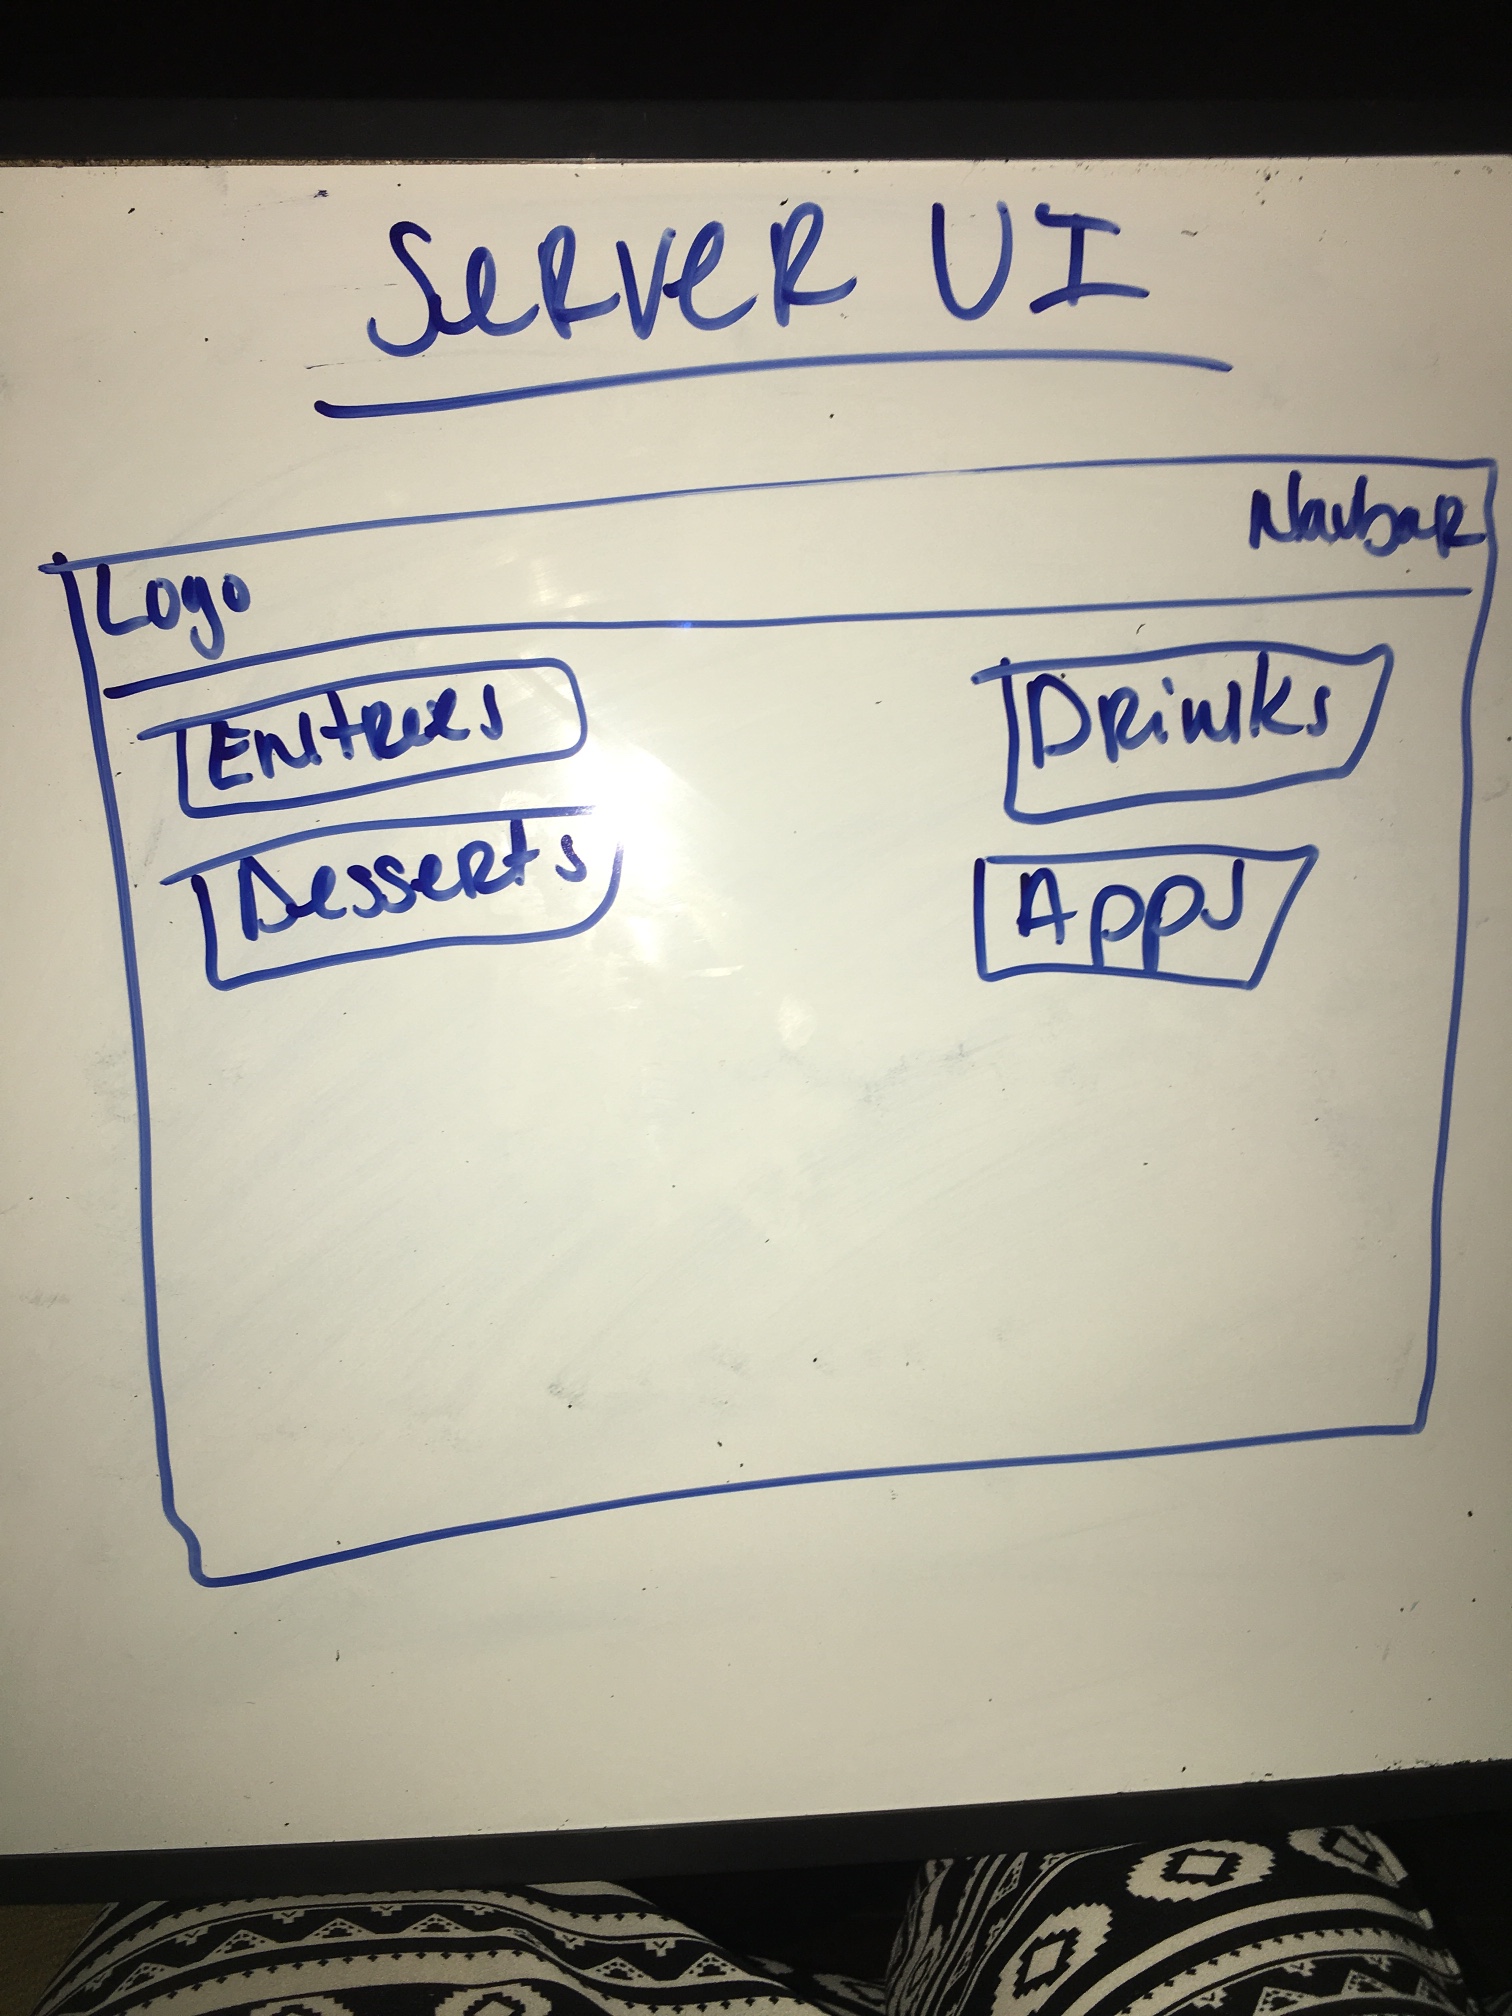 Server UI
Logo
Navbar
Entrees
Drinks
Desserts
Apps